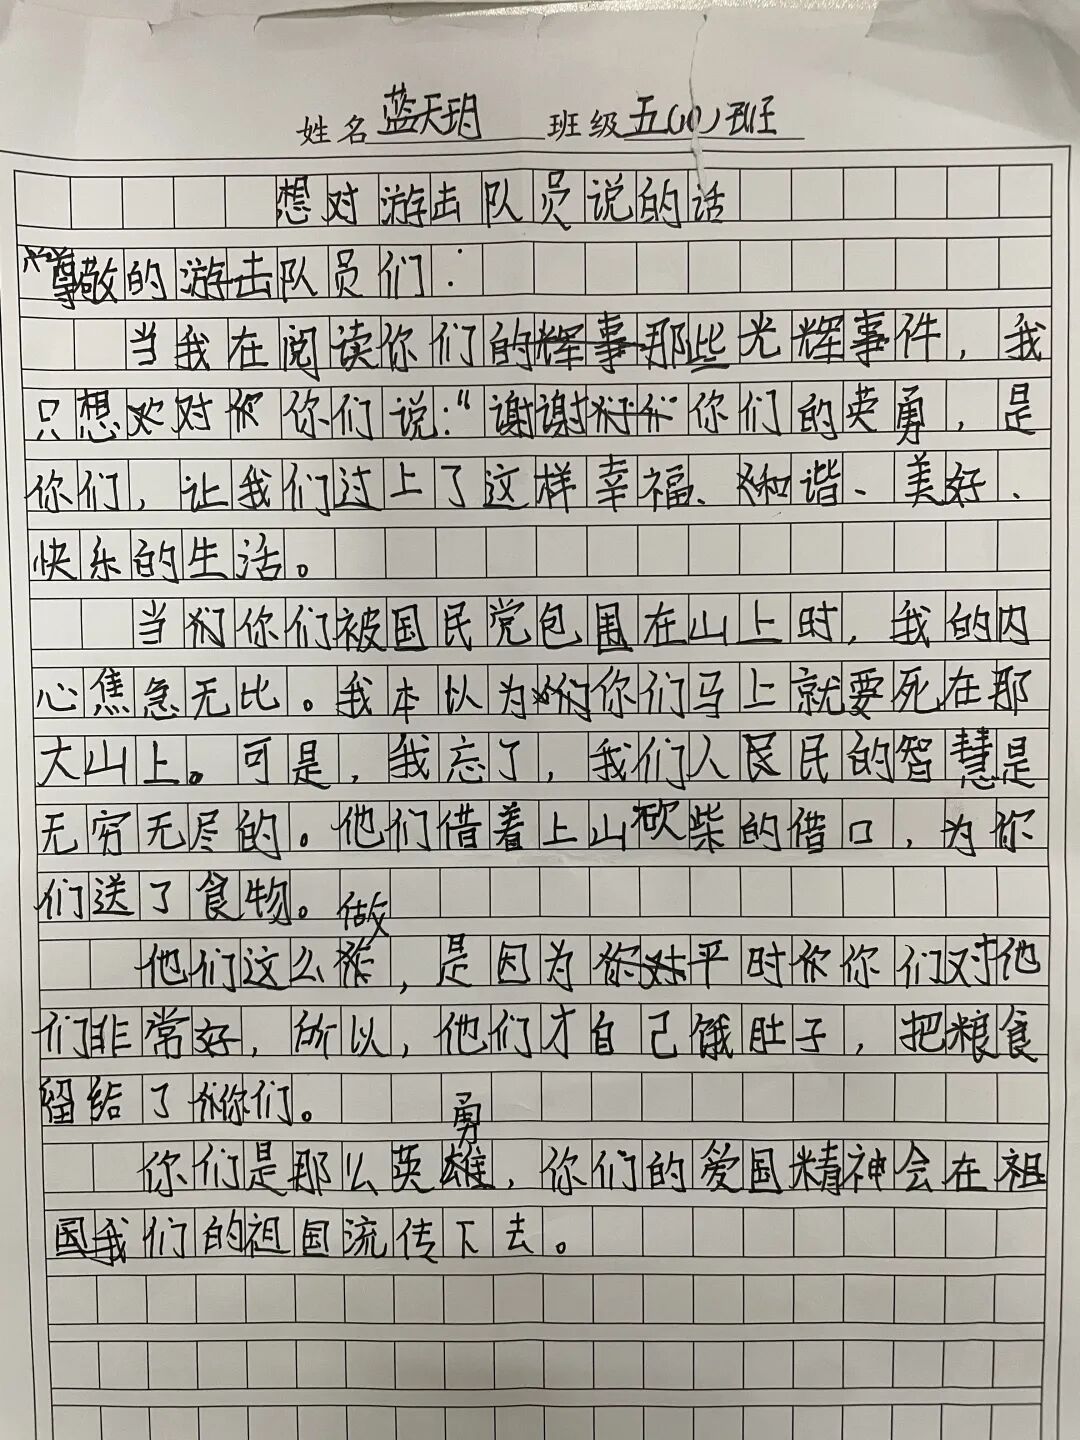 姓名蓝天玥 班级五(10)班
想对游击队员说的话
尊敬的游击队员们：
当我在阅读你们的辉事那些光辉事件，我
只想对你们说：“谢谢你们的英勇，是
你们，让我们过上了这样幸福、和谐、美好、
快乐的生活。
当你们被国民党包围在山上时，我的内
心焦急无比。我本以为你们马上就要死在那
大山上。可是，我忘了，我们人民民的智慧是
无穷无尽的。他们借着上山砍柴的借口，为你
们送了食物。
他们这么做，是因为你对平时你们对他
们非常好，所以，他们才自己饿肚子，把粮食
留给了你们。
你们是那么英勇，你们的爱国精神会在祖
国我们的祖国流传下去。